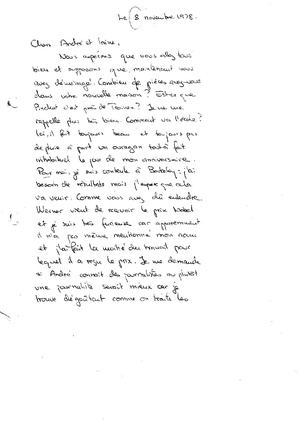 le 8 novembre 1978.
Cher André et Irène,
Nous espérons que vous allez tous
bien et supposons que maintenant vous
avez déménagé. Combien de pièces avez-vous
dans votre nouvelle maison ? Est-ce que
c'est près de ? Je ne me
rappelle plus très bien. Comment va l'école ?
Ici, il fait toujours beau et toujours pas
de pluie à part un ouragan tout à fait
inhabituel le jour de mon anniversaire.
Pour moi, je suis contente à Berkeley : j'ai
besoin de résultats mais j'espère que cela
va venir. Comme vous avez dû entendre
Werner vient de recevoir le prix Nobel
et je suis très furieuse car apparemment
il n'a pas même mentionné mon nom
et j'ai fait la moitié du travail pour
lequel il a reçu le prix. Je me demande
si André connait des journalistes ou plutôt
une journaliste serait mieux car je
trouve dégoûtant comme on traite les